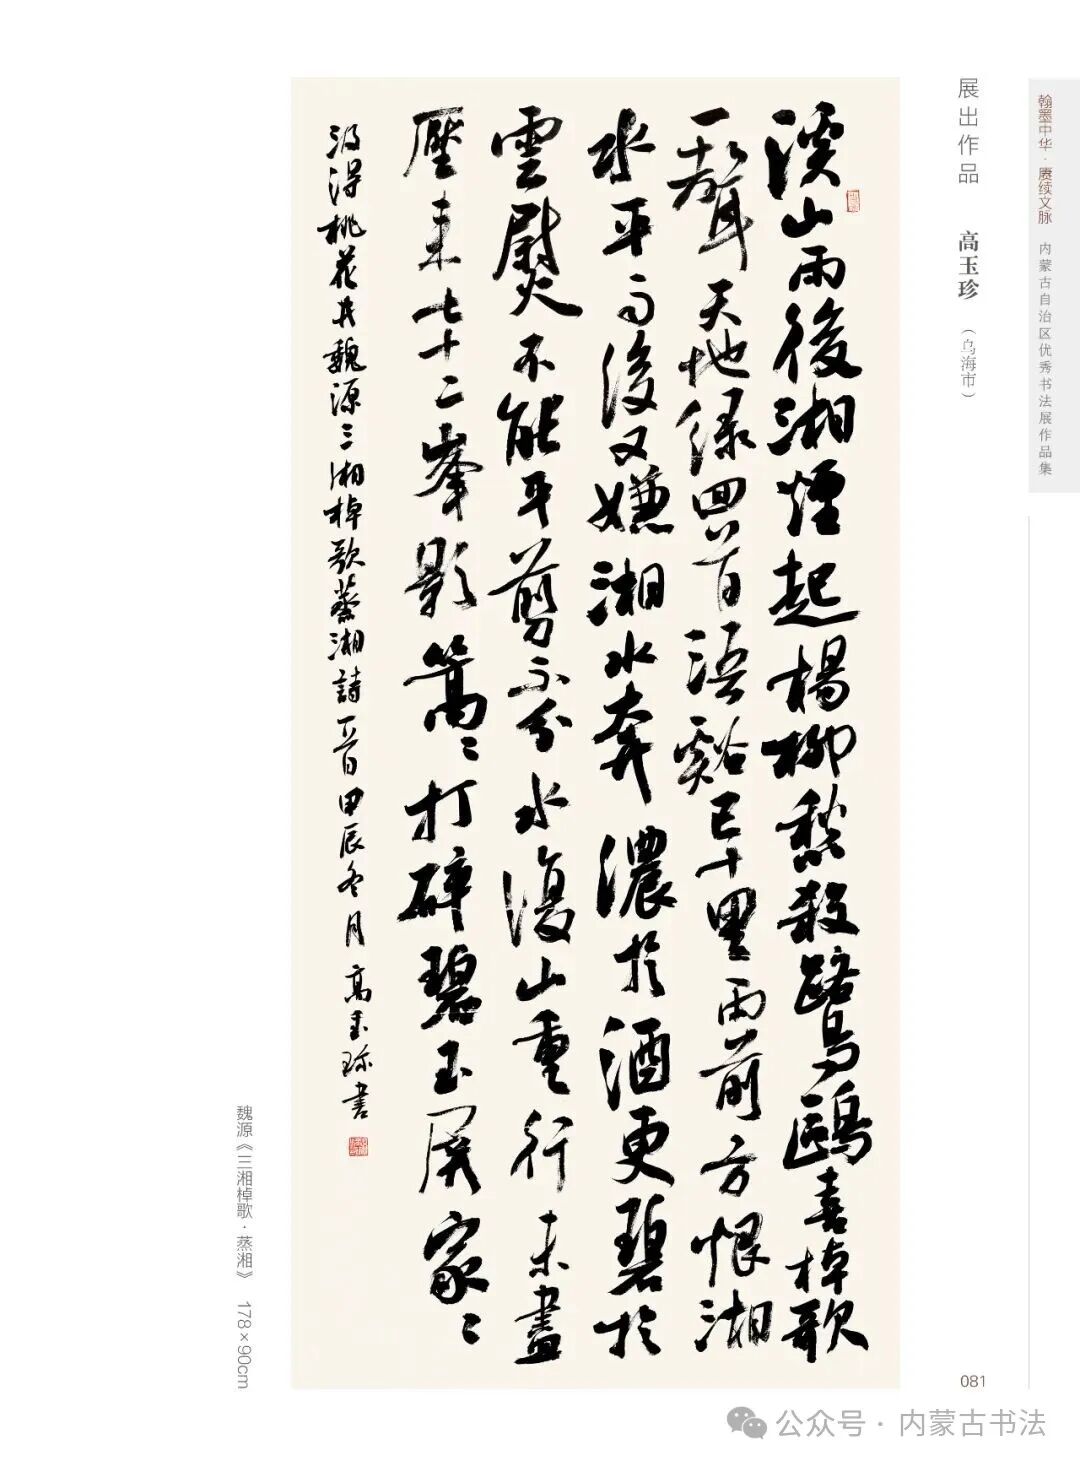 翰墨中华·赓续文脉 内蒙古自治区优秀书法展作品集
展出作品 高玉珍 （乌海市）
溪山雨後湘煙起楊柳愁殺鷺鷗喜棹歌
一聲天地緑回首浯谿已十里雨前方恨湘
水平雨後又嫌湘水奔濃於酒更碧於
雲熨不能平剪不分水復山重行未盡
壓来七十二峯影篙〻打碎碧玉屏家〻
汲得桃花井魏源三湘棹歌蒸湘詩一首甲辰冬月高玉珍書
魏源《三湘棹歌·蒸湘》 178×90cm
081
公众号·内蒙古书法